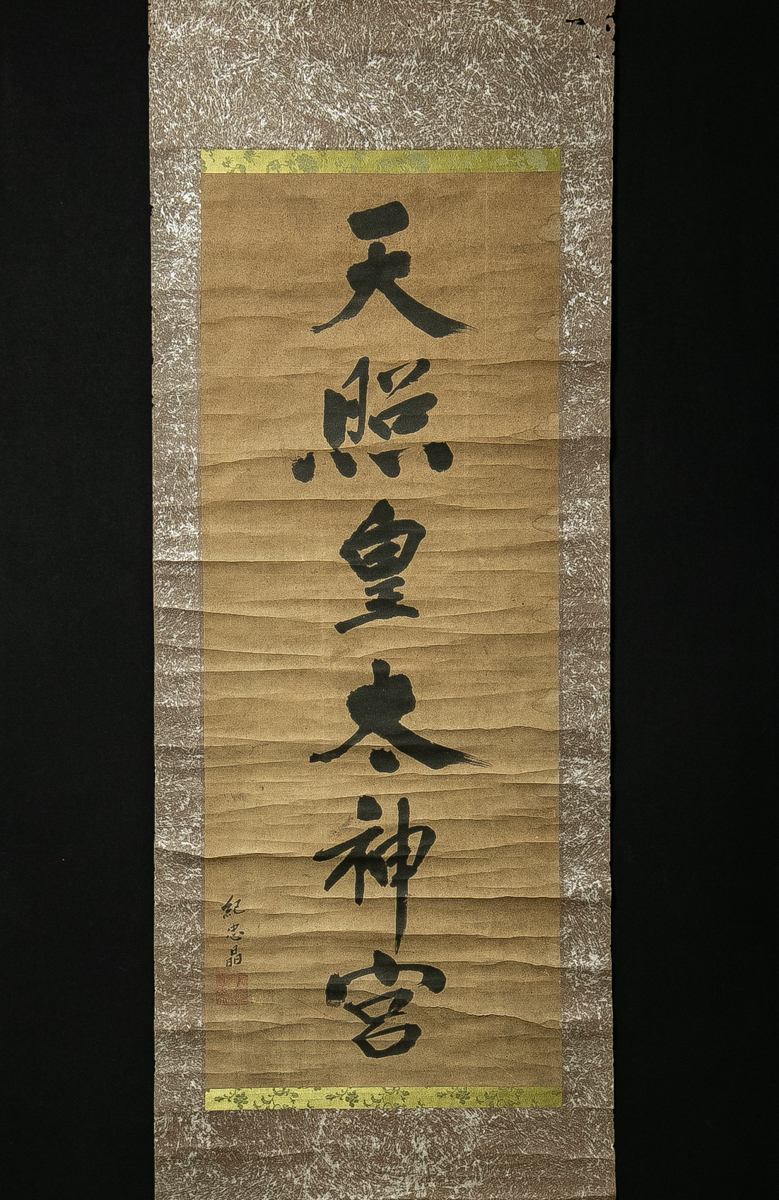 天照皇太神宮
紀忠晶